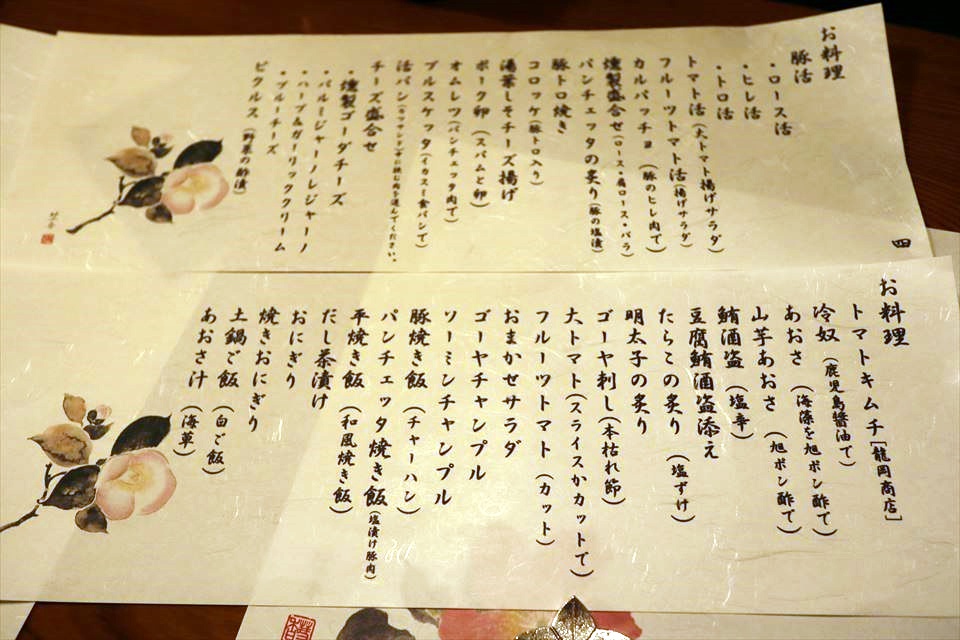 お料理
豚活
・ロース活
・ヒレ活
・トロ活
トマト活(大トマト揚げサラダ)
フルーツトマト活(揚げサラダ)
カルパッチョ(豚のヒレ肉で)
燻製盛合せ(ロース・肩ロース・バラ)
パンチェッタの炙り(豚の塩漬)
豚トロ焼き
コロッケ(豚トロ入り)
湯葉しそチーズ揚げ
ポーク卵(スパムと卵)
オムレツ(パンチェッタ肉で)
ブルスケッタ(イカスミ食パンで)
活パン(カツサンド/中に挟む肉を選んでください。)
チーズ盛合せ
・燻製ゴーダチーズ
・パルミジャーノレジャーノ
・ハーブ&ガーリッククリーム
・ブルーチーズ
ピクルス(野菜の酢漬)
四
お料理
トマトキムチ[龍岡商店]
冷奴(鹿児島醤油で)
あおさ(海藻を旭ポン酢で)
山芋あおさ(旭ポン酢で)
鮪酒盗(塩辛)
豆腐鮪酒盗添え
たらこの炙り(塩ずけ)
明太子の炙り
ゴーヤ刺し(本枯れ節)
大トマト(スライスかカットで)
フルーツトマト(カット)
おまかせサラダ
ゴーヤチャンプル
ソーミンチャンプル
豚焼き飯(チャーハン)
パンチェッタ焼き飯(塩漬け豚肉)
平焼き飯(和風焼き飯)
だし茶漬け
おにぎり
焼きおにぎり
土鍋ご飯(白ご飯)
あおさ汁(海草)